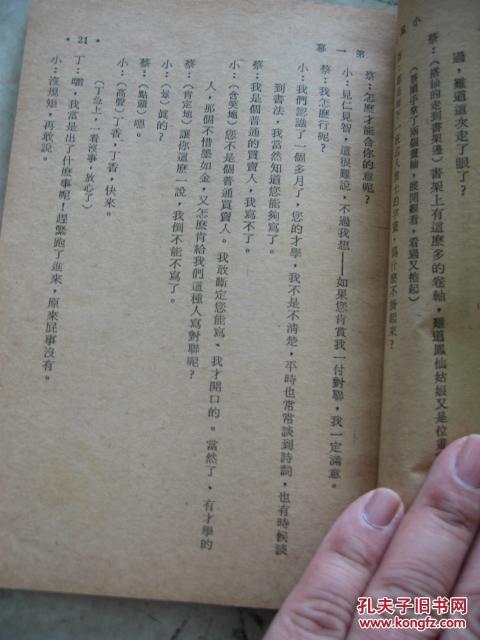 小鳳
過，難道這次走了眼了？
蔡：（踱到走到書架邊）書架上有這麼多的卷軸，難道鳳仙姑娘又是位畫
（蔡順手拿了兩個畫軸，展開觀看，看過又捲起）
爲什麼不掛起來？
第一幕
蔡：怎麼才能合你的意呢？
小：見仁見智，這很難說，不過我想——如果您肯賞我一付對聯，我一定滿意。
蔡：我怎麼行呢？
小：我們認識了一個多月了，您的才學，我不是不清楚，平時也常常談到詩詞，也有時候談
到書法，我當然知道您能夠寫了。
蔡：我是個普通的買賣人，我寫不了。
小：（含笑地）您不是個普通買賣人。我敢斷定您能寫、我才開口的。當然了，有才學的
人，那個不惜墨如金，又怎麼肯給我們這種人寫對聯呢？
蔡：（肯定地）讓你這麼一說，我倒不能不寫了。
小：（景）眞的？
蔡：（點頭）嗯。
小：（高聲）丁香，丁香，快來。
（丁急上，一看沒事，放心了）
丁：嚄，我當是出了什麼事呢！趕緊跑了進來，原來屁事沒有。
小：沒規矩，再敢說。
• 21 •
孔夫子旧书网
www.kongfz.com